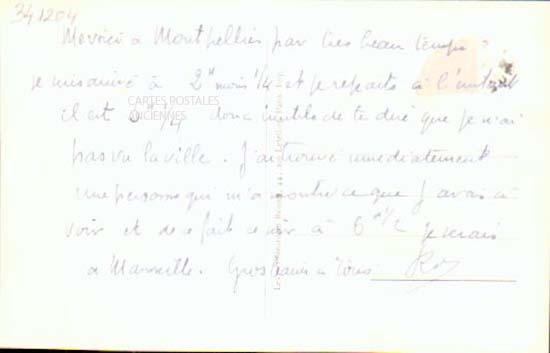 341204
Me voici à Montpellier par très beau temps
je suis arrivé à 2h moins 1/4 et je reparts à l'instant
il est h 1/4 donc inutile de te dire que je n'ai
CARTES POSTALES
ANCIENNES
pas vu la ville. J'ai trouvé immédiatement
une personne qui m'a montré ce que j'avais à
voir et de ce fait ce soir à 6h 1/2 je serais
à Marseille. Gros baisers à tous